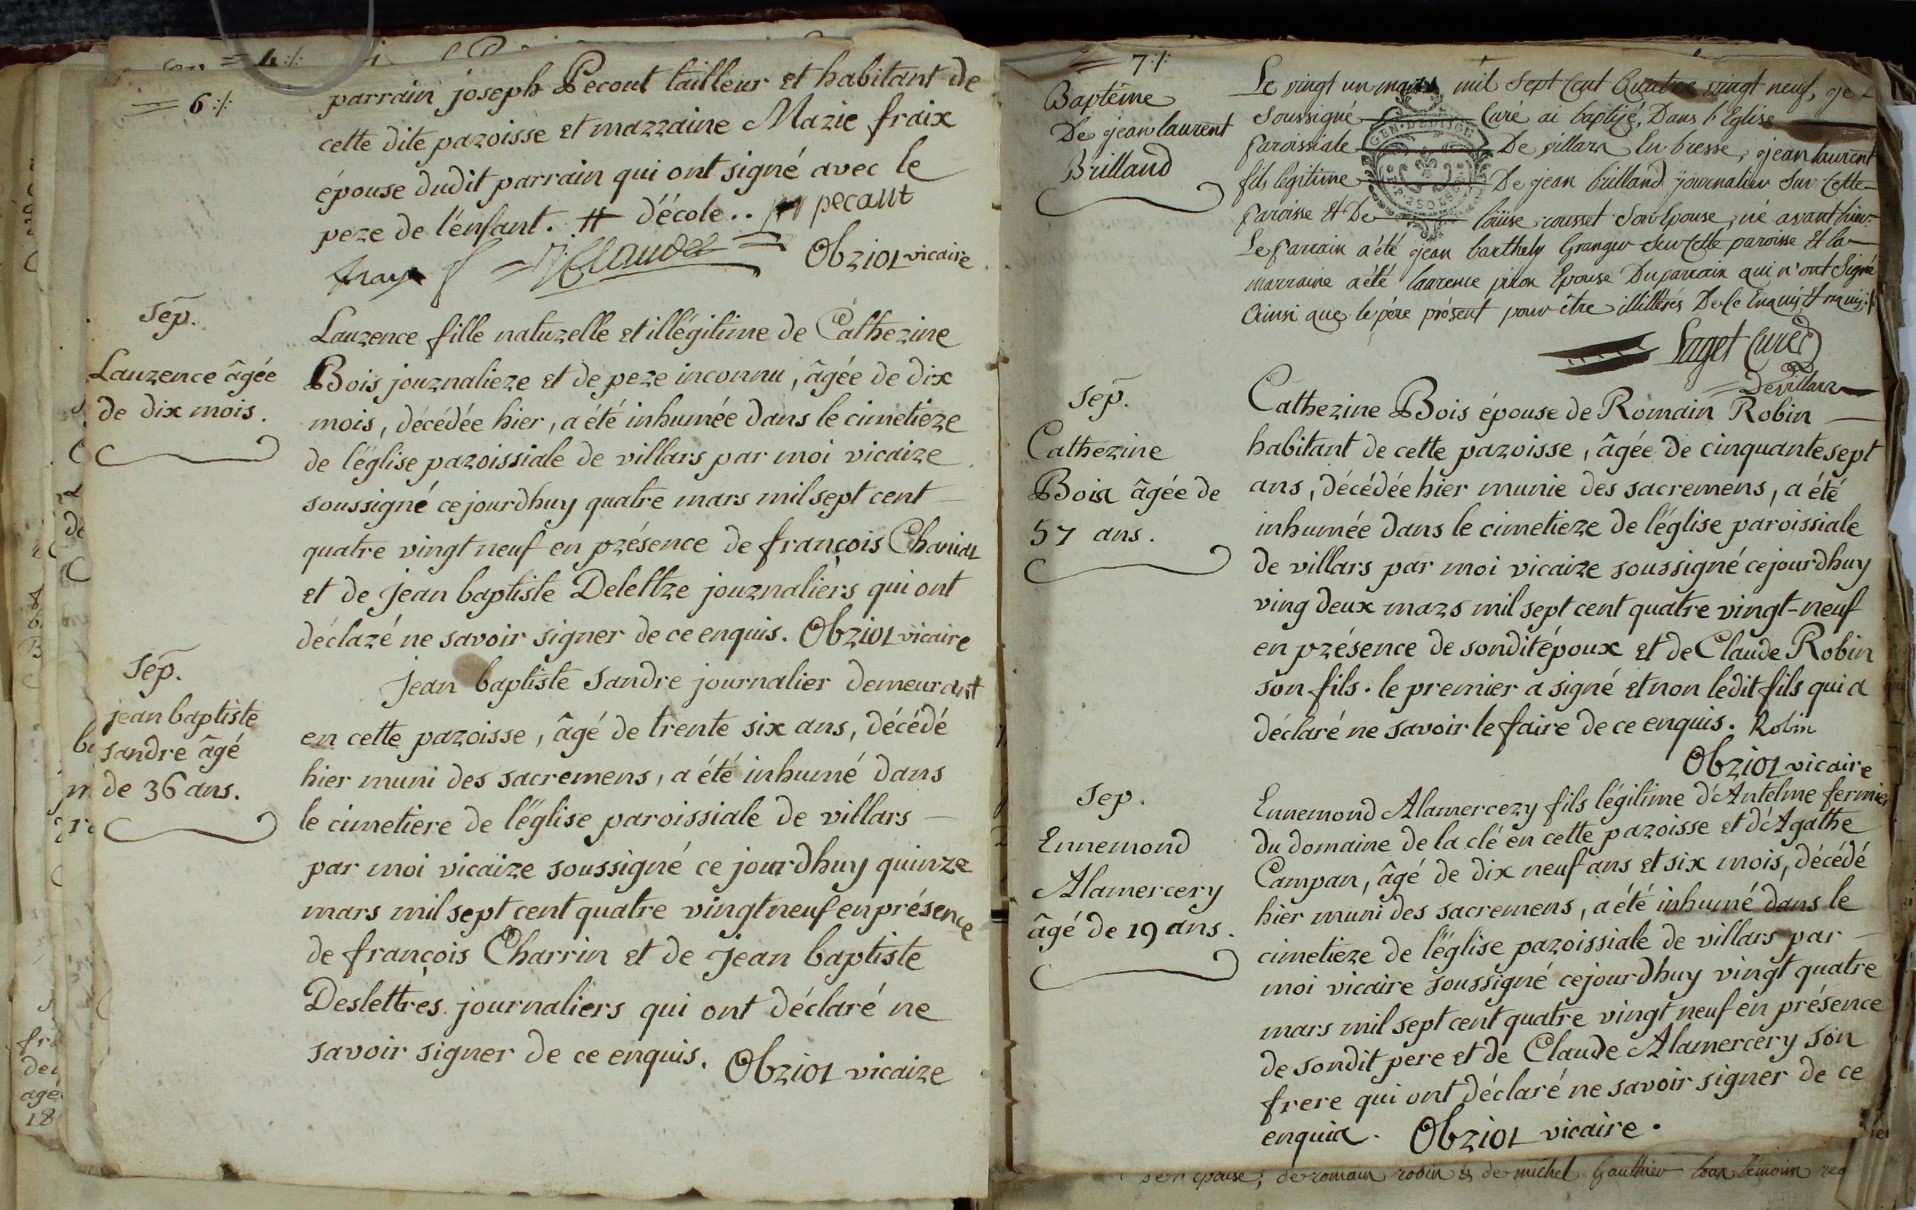 = 6 ·/·
parrain joseph Pecout tailleur et habitant de
cette dite paroisse et marraine Marie fraix
épouse dudit parrain qui ont signé avec le
pere de l'enfant. # d'école.. pecaut
fraix Obriot vicaire
Sep.
Laurence âgée
de dix mois.
Laurence fille naturelle et illégitime de Catherine
Bois journaliere et de pere inconnu, âgée de dix
mois, décédée hier, a été inhumée dans le cimetiere
de l'église paroissiale de villars par moi vicaire
soussigné cejourdhuy quatre mars mil sept cent
quatre vingt neuf en présence de françois
et de jean baptiste Delettre journaliers qui ont
déclaré ne savoir signer de ce enquis. Obriot vicaire
Sep.
jean baptiste
sandre âgé
de 36 ans.
jean baptiste sandre journalier demeurant
en cette paroisse, âgé de trente six ans, décédé
hier muni des sacremens, a été inhumé dans
le cimetiere de l'église paroissiale de villars
par moi vicaire soussigné ce jourdhuy quinze
mars mil sept cent quatre vingt neuf en présence
de françois Charrin et de jean baptiste
Deslettres journaliers qui ont déclaré ne
savoir signer de ce enquis. Obriot vicaire
= 7 ·/·
Baptême
De jean laurent
Brilland
Le vingt un mars mil sept Cent Quatre vingt neuf, je
soussigné Curé ai baptisé, Dans l'Eglise
paroissiale De villars En bresse, jean laurent
fils légitime De jean brilland journalier Sur Cette
paroisse Et De louise rousset Son Epouse, né avant hier.
Le parrain a été jean barthely Granger Sur Cette paroisse Et la
marraine a été laurence pillon Epouse Du parrain qui n'ont Signé
Ainsi que le père présent pour être illittérés De Ce Enquis Et requis
GEN. DE DIJON
Saget Curé
De villars
Sep.
Catherine
Bois âgée de
57 ans.
Catherine Bois épouse de Romain Robin
habitant de cette paroisse, âgée de cinquante sept
ans, décédée hier munie des sacremens, a été
inhumée dans le cimetiere de l'église paroissiale
de villars par moi vicaire soussigné cejourdhuy
ving deux mars mil sept cent quatre vingt-neuf
en présence de sondit époux et de Claude Robin
son fils. le premier a signé et non ledit fils qui a
déclaré ne savoir le faire de ce enquis. Robin
Obriot vicaire
Sep.
Ennemond
Alamercery
âgé de 19 ans.
Ennemond Alamercery fils légitime d'Antelme fermier
du domaine de la clé en cette paroisse et d'Agathe
Campan, âgé de dix neuf ans et six mois, décédé
hier muni des sacremens, a été inhumé dans le
cimetiere de l'église paroissiale de villars par
moi vicaire soussigné cejourdhuy vingt quatre
mars mil sept cent quatre vingt neuf en présence
de sondit pere et de Claude Alamercery son
frere qui ont déclaré ne savoir signer de ce
enquis. Obriot vicaire.
epouse, de romain robin & de michel Gauthier temoin